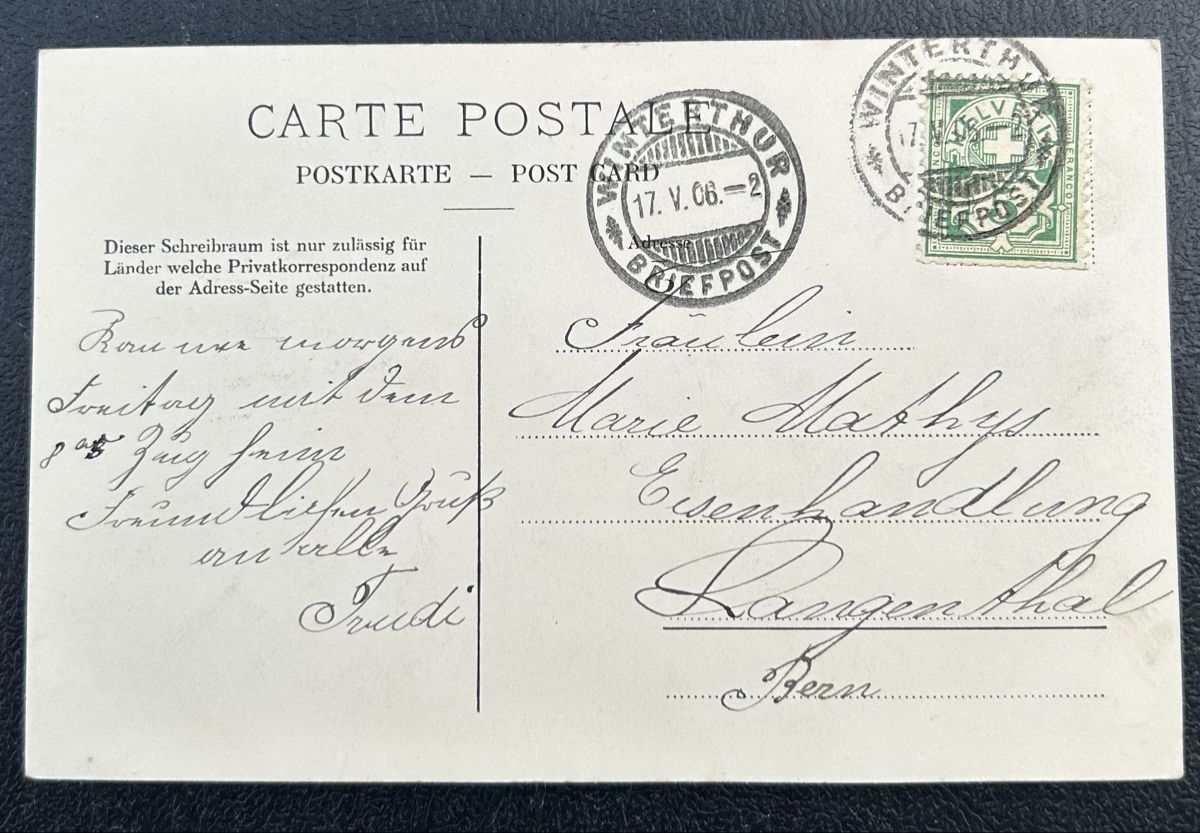 CARTE POSTALE
POSTKARTE — POST CARD
WINTERTHUR
17. V. 06.—2
BRIEFPOST
WINTERTHUR
BRIEFPOST
HELVETIA
FRANCO
5
Dieser Schreibraum ist nur zulässig für
Länder welche Privatkorrespondenz auf
der Adress-Seite gestatten.
Adresse
morgens
Freitag mit dem
Zug heim
Freundlichen Gruß
an alle
Trudi
Fräulein
Marie Mathys
Eisenhandlung
Langenthal
Bern